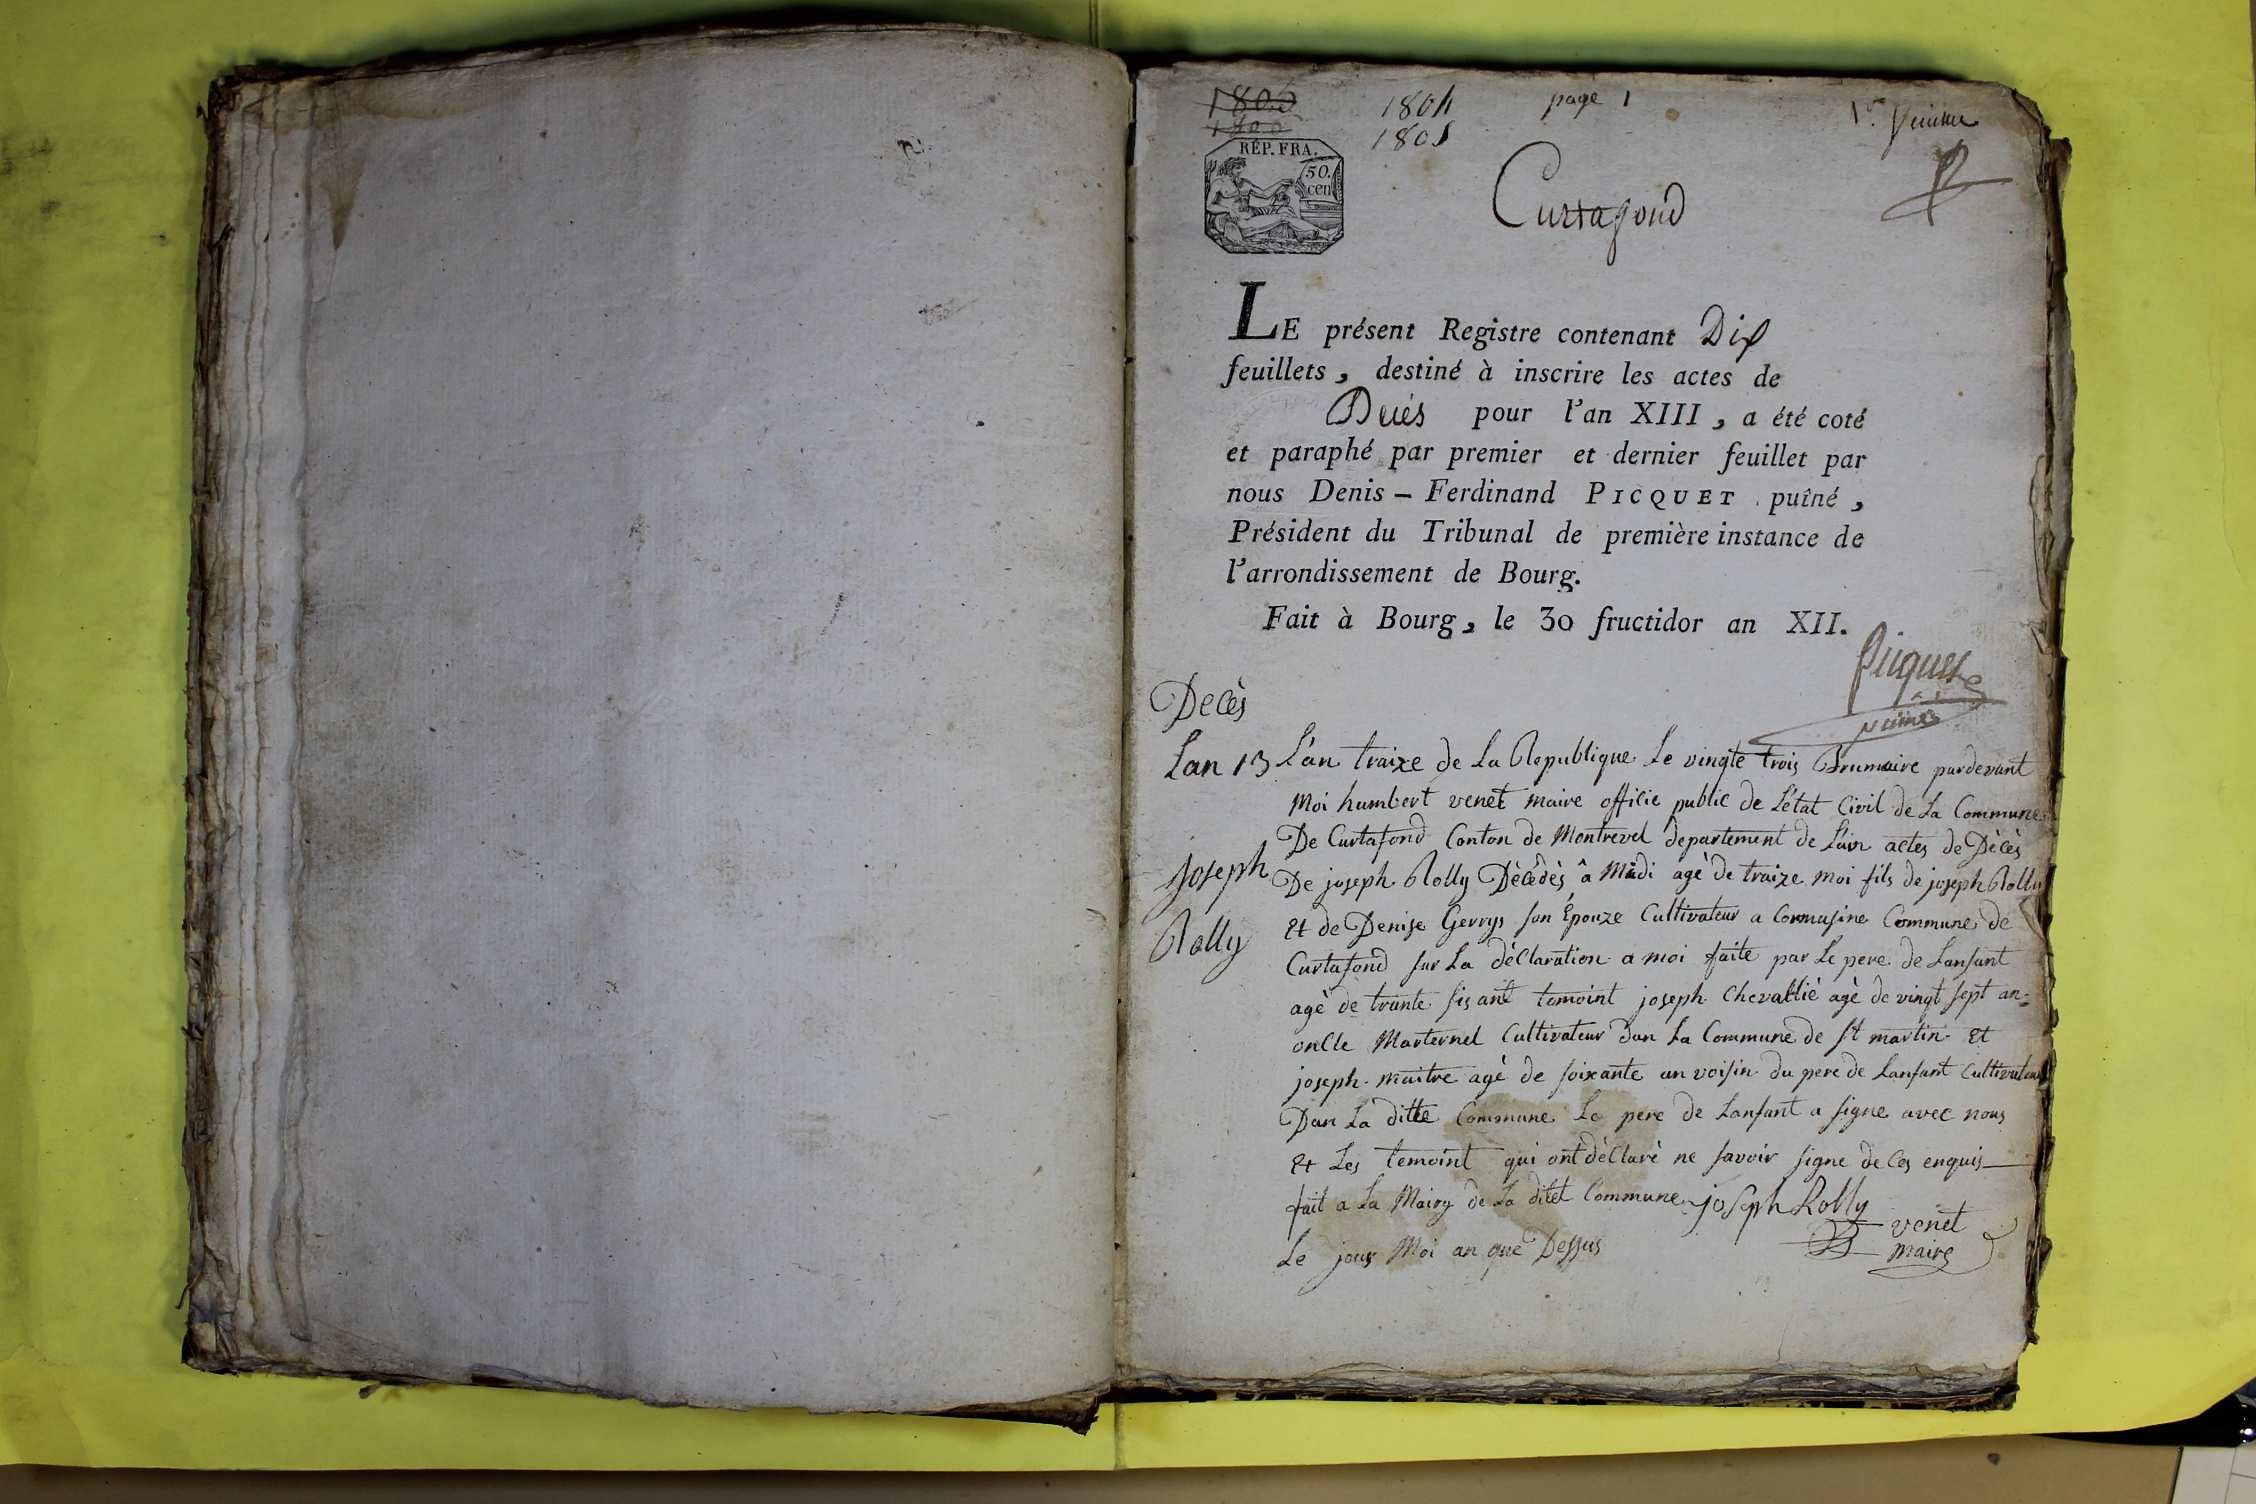 1805
1804
page 1
1er
1805
RÉP. FRA.
50.
cen
Curtafond
LE présent Registre contenant Dix
feuillets, destiné à inscrire les actes de
Décès pour l'an XIII, a été coté
et paraphé par premier et dernier feuillet par
nous Denis - Ferdinand PICQUET puîné,
Président du Tribunal de première instance de
l'arrondissement de Bourg.
Fait à Bourg, le 30 fructidor an XII.
Picquet
puiné
Decès
Lan 13
Joseph
Rolly
L'an traize de La Republique Le vingte trois Brumaire pardevant
Moi humbert venet maire officie public de L'état Civil de La Commune
De Curtafond Conton de Montrevel departement de L'ain actes de Dècès
De joseph Rolly Dècédès â Midi agè de traize moi fils de joseph Rolly
Et de Denise Gerrys son Épouze Cultivateur a Cormasine Commune de
Curtafond sur La dèClaration a moi faite par Le pere de Lanfant
agè de trante sis ant temoint joseph Chevalliè agè de vingt sept an
onCle Marternel Cultivateur Dan La Commune de st martin Et
joseph maitre agè de soixante an voisin du pere de Lanfant Cultivateur
Dan La ditte Commune Le pere de Lanfant a signe avec nous
Et Les temoint qui ont dèClarè ne savoir signe de Ces enquis
fait a La Mairy de La ditet Commune
Le jour Moi an que Dessus
joseph Rolly
venet
maire